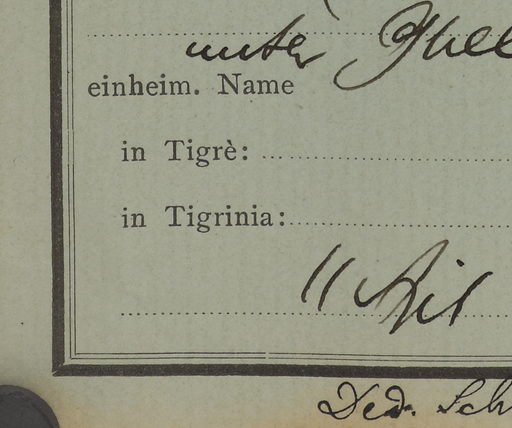 unter
einheim. Name
in Tigrè:
in Tigrinia:
Ded. Sch